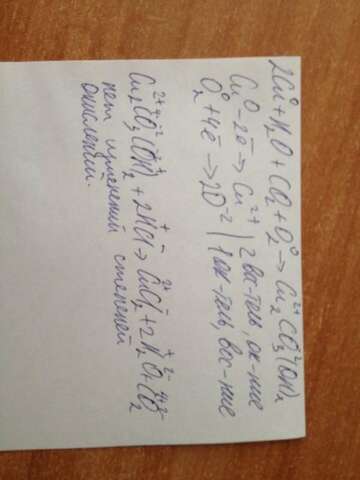 2Cu⁰ + H₂O + CO₂ + O₂⁰ → Cu₂²⁺CO₃(OH)₂
Cu⁰ – 2e → Cu²⁺ | 2 вс-тель, ок-ние
O₂⁰ + 4e → 2O⁻² | 1 ок-тель, вос-ние
Cu₂CO₃(OH)₂ + 2HCl → CuCl₂ + 2H₂O + CO₂
нет изменений степеней
окисления.